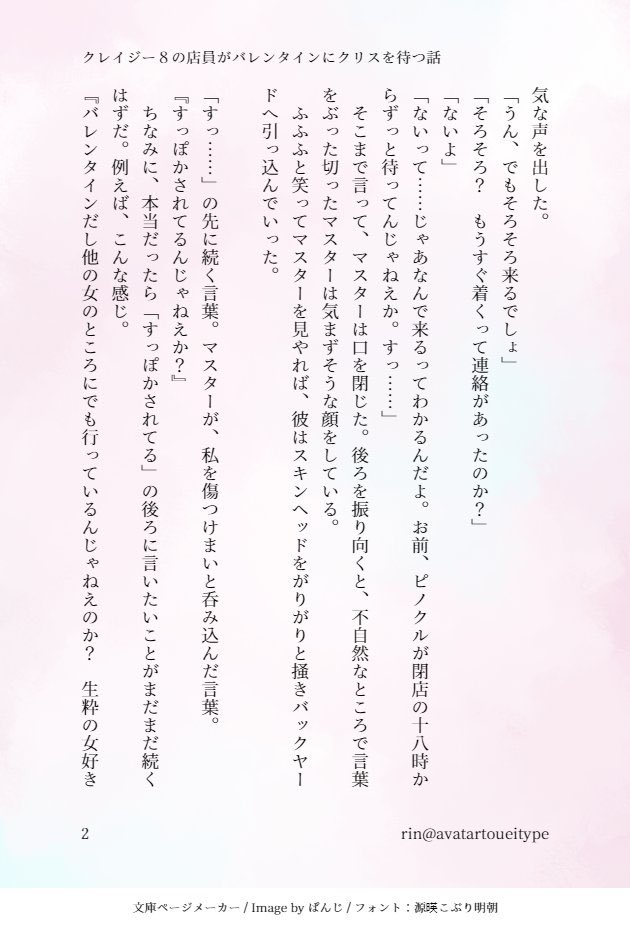 クレイジー８の店員がバレンタインにクリスを待つ話
気な声を出した。
「うん、でもそろそろ来るでしょ」
「そろそろ？　もうすぐ着くって連絡があったのか？」
「ないよ」
「ないって……じゃあなんで来るってわかるんだよ。お前、ピノクルが閉店の十八時か
らずっと待ってんじゃねえか。すっ……」
　そこまで言って、マスターは口を閉じた。後ろを振り向くと、不自然なところで言葉
をぶった切ったマスターは気まずそうな顔をしている。
　ふふふと笑ってマスターを見やれば、彼はスキンヘッドをがりがりと掻きバックヤー
ドへ引っ込んでいった。
「すっ……」の先に続く言葉。マスターが、私を傷つけまいと呑み込んだ言葉。
『すっぽかされてるんじゃねえか？』
　ちなみに、本当だったら「すっぽかされてる」の後ろに言いたいことがまだまだ続く
はずだ。例えば、こんな感じ。
『バレンタインだし他の女のところにでも行っているんじゃねえのか？　生粋の女好き
2
rin@avatartoueitype
文庫ページメーカー / Image by ぱんじ / フォント：源暎こぶり明朝